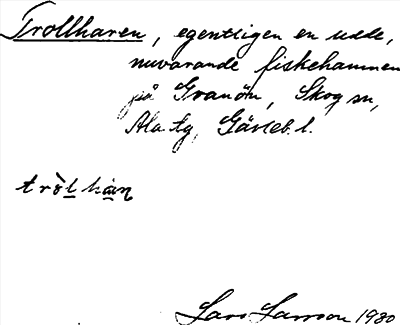 Trollharen, egentligen en udde,
nuvarande fiskehamnen
på Granön, Skog sn,
Ala tg, Gävleb. l.
tròl hàrn
Lars Larsson 1930